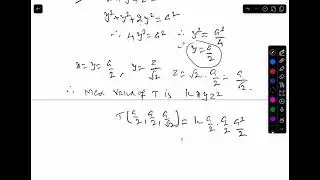 y²+y²+2y² = a²
∴ 4y² = a² ∴ y² = a²/4
∴ y = a/2
x = y = a/2, y = z/√2 z = √2 · a/2 = a/√2
∴ Max value of T is kxyz²
T(a/2, a/2, a/√2) = k a/2 · a/2 · a²/2